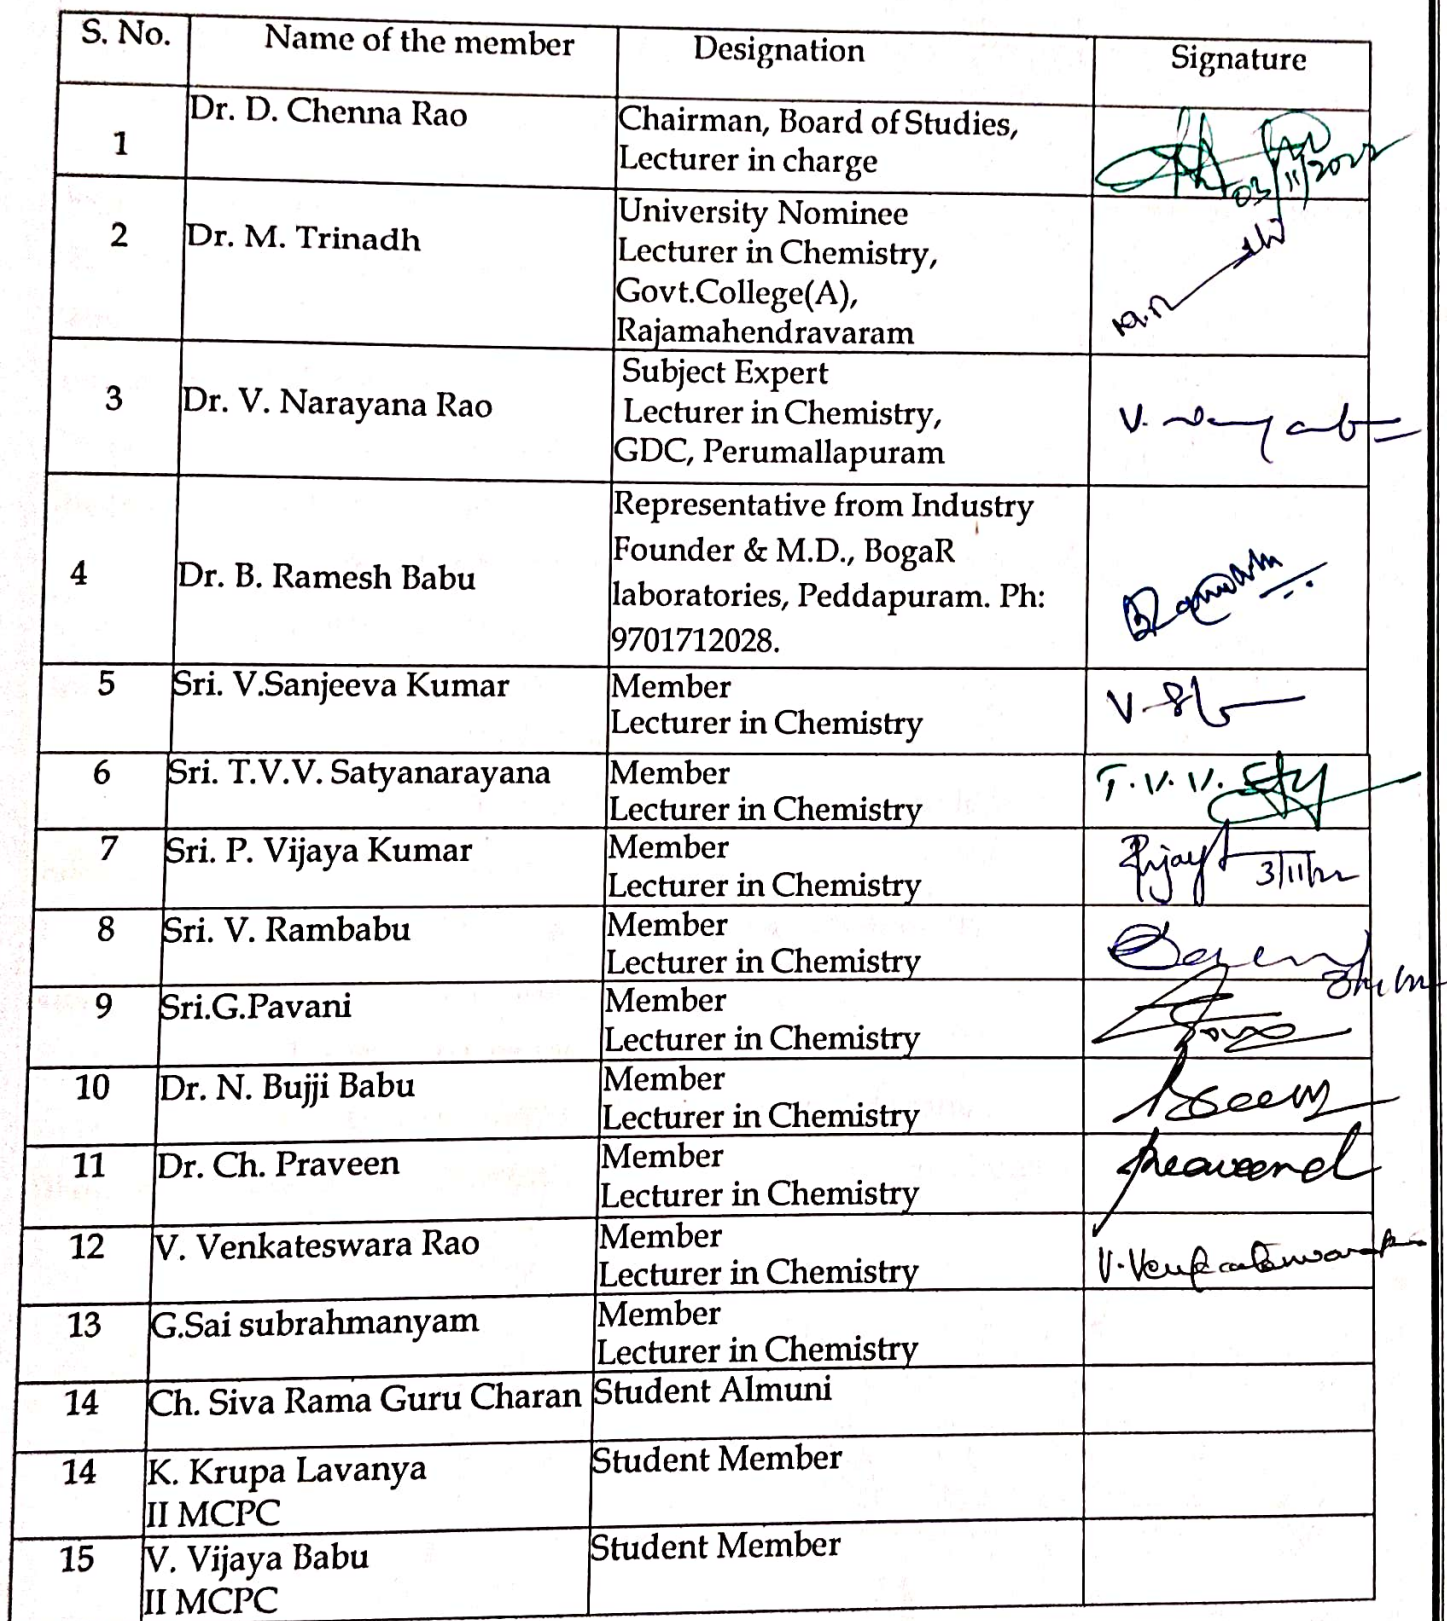 S. No. Name of the member Designation Signature
1 Dr. D. Chenna Rao Chairman, Board of Studies,
Lecturer in charge
03/11/2022
2 Dr. M. Trinadh University Nominee
Lecturer in Chemistry,
Govt.College(A),
Rajamahendravaram
3 Dr. V. Narayana Rao Subject Expert
Lecturer in Chemistry,
GDC, Perumallapuram
4 Dr. B. Ramesh Babu Representative from Industry
Founder & M.D., BogaR
laboratories, Peddapuram. Ph:
9701712028.
5 Sri. V.Sanjeeva Kumar Member
Lecturer in Chemistry
6 Sri. T.V.V. Satyanarayana Member T.V.V.
Lecturer in Chemistry
7 Sri. P. Vijaya Kumar Member
Lecturer in Chemistry 3/11/22
8 Sri. V. Rambabu Member
Lecturer in Chemistry
9 Sri.G.Pavani Member
Lecturer in Chemistry
10 Dr. N. Bujji Babu Member
Lecturer in Chemistry
11 Dr. Ch. Praveen Member
Lecturer in Chemistry
12 V. Venkateswara Rao Member
Lecturer in Chemistry
13 G.Sai subrahmanyam Member
Lecturer in Chemistry
14 Ch. Siva Rama Guru Charan Student Almuni
14 K. Krupa Lavanya Student Member
II MCPC
15 V. Vijaya Babu Student Member
II MCPC